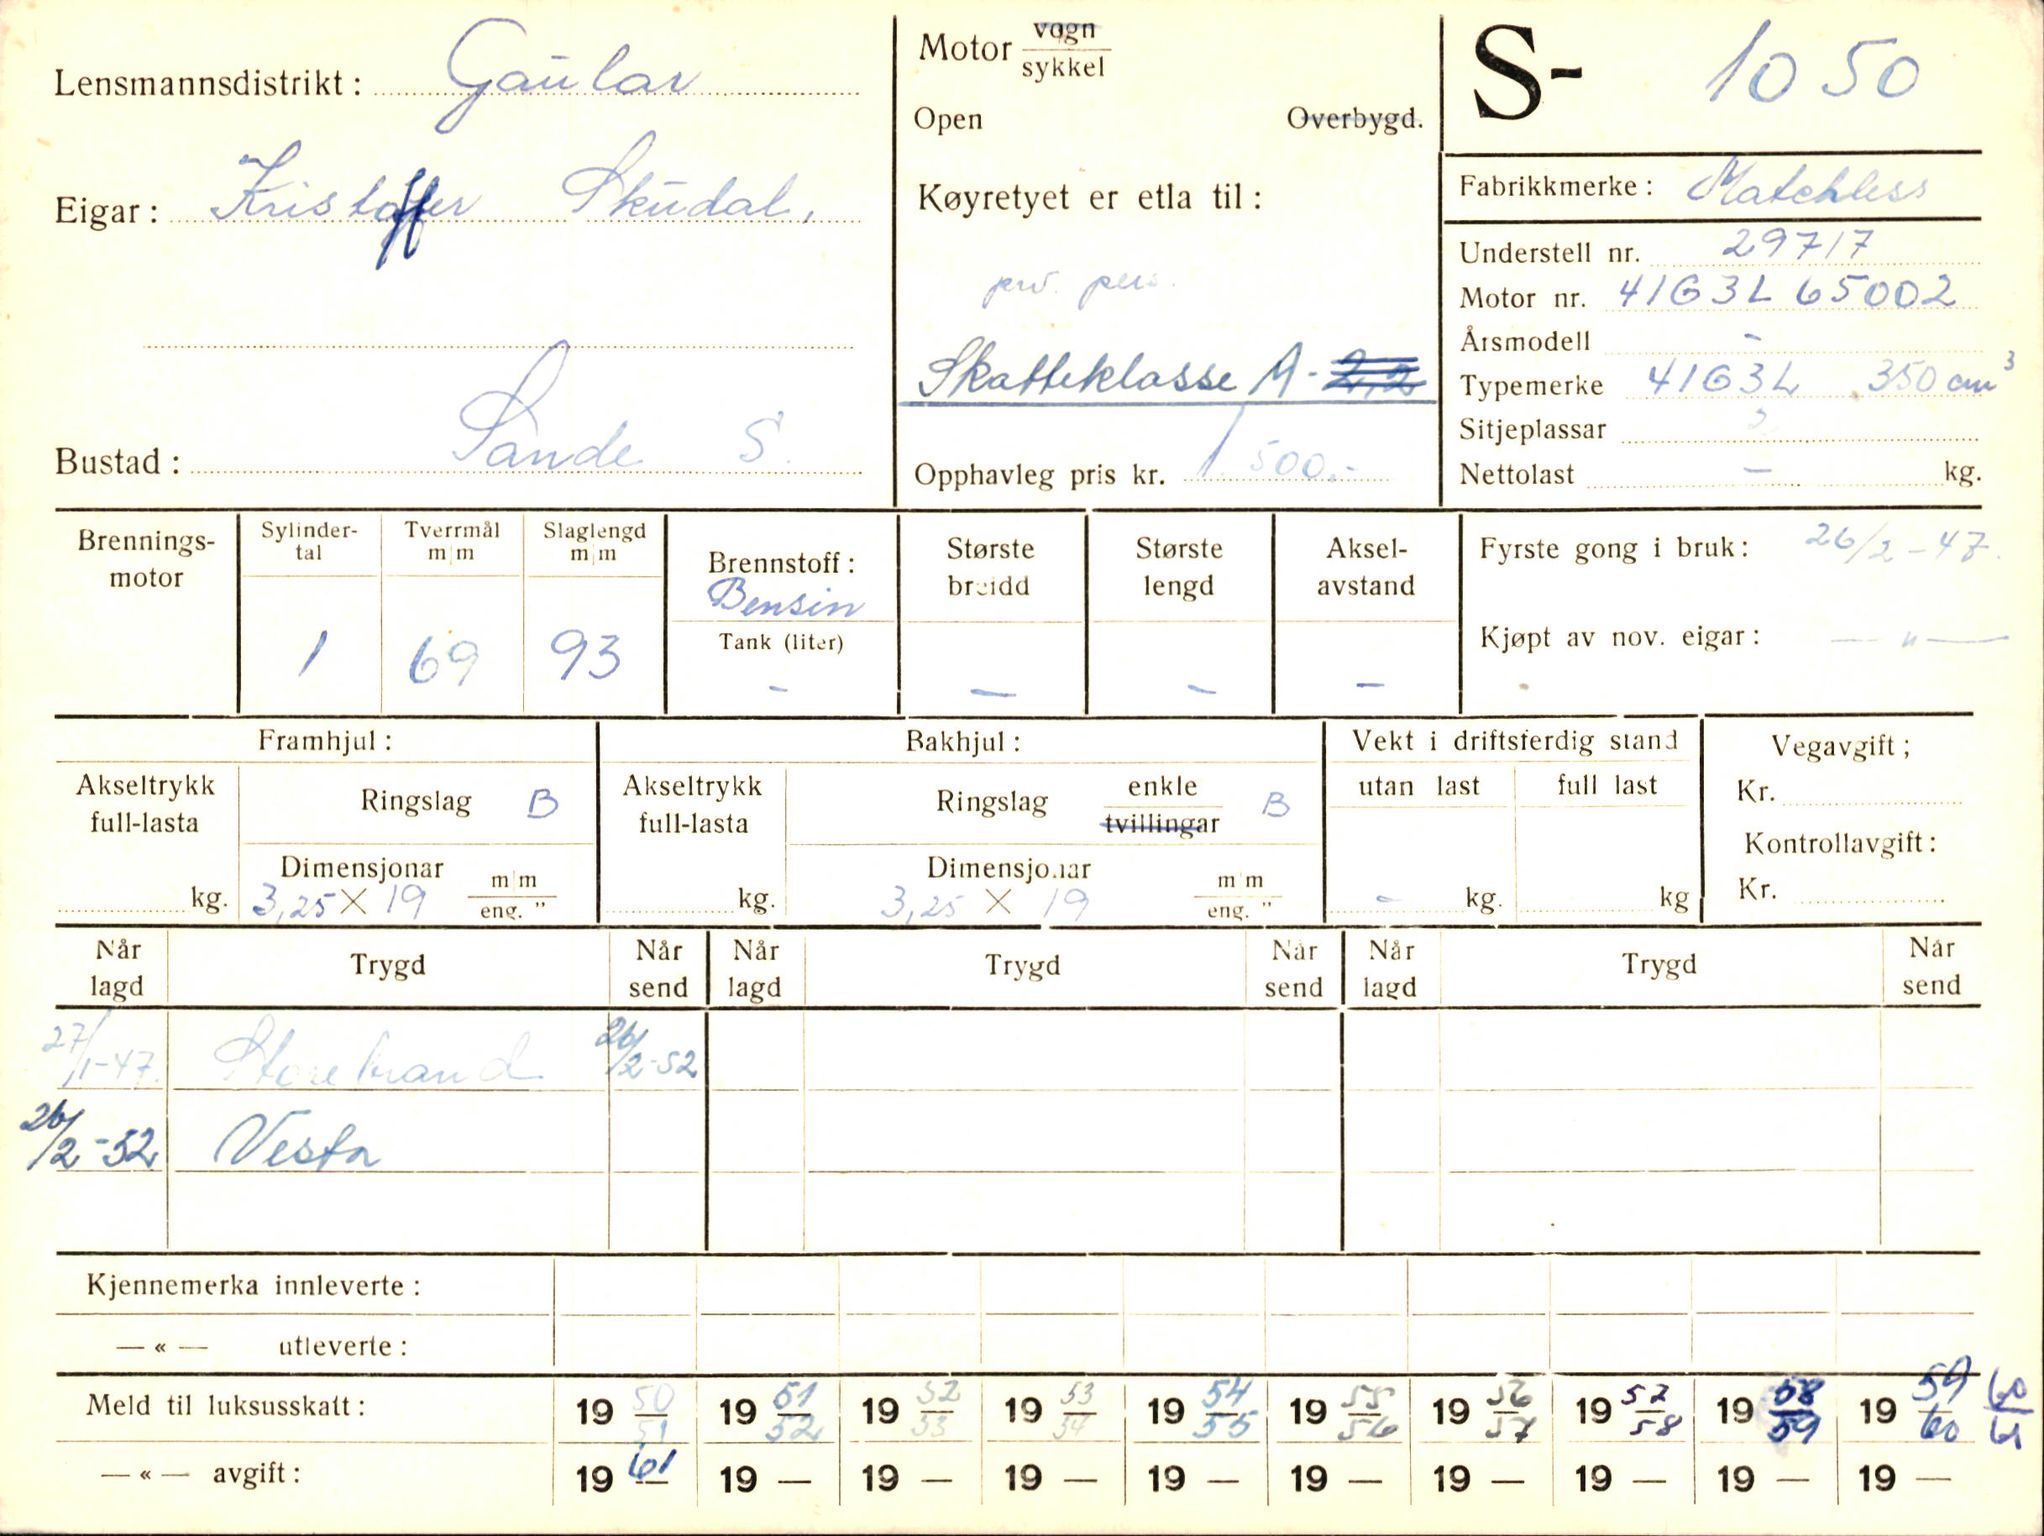 Lensmannsdistrikt: Gaular
Eigar: Kristoffer Skudal,
Bustad: Sande S.
Motor vogn
sykkel
Open Overbygd.
Køyretyet er etla til:
prv. pers.
Skatteklasse A - 2,2
Opphavleg pris kr. 1500.-
S- 1050
Fabrikkmerke: Matchless
Understell nr. 29717
Motor nr. 41G3L 65002
Årsmodell -
Typemerke 41G3L 350 cm³
Sitjeplassar 2
Nettolast - kg.
Brennings-
motor
Sylinder-
tal
1
Tverrmål
m|m
69
Slaglengd
m|m
93
Brennstoff:
Bensin
Tank (liter)
-
Største
breidd
-
Største
lengd
-
Aksel-
avstand
-
Fyrste gong i bruk: 26/2-47.
Kjøpt av nov. eigar: — " —
Framhjul:
Akseltrykk
full-lasta
kg.
Ringslag B
Dimensjonar m|m
3,25 X 19 eng. "
Bakhjul:
Akseltrykk
full-lasta
kg.
Ringslag enkle B
tvillingar
Dimensjonar m|m
3,25 X 19 eng. "
Vekt i driftsferdig stand
utan last full last
- kg. kg
Vegavgift;
Kr.
Kontrollavgift:
Kr.
Når
lagd Trygd Når
send Når
lagd Trygd Når
send Når
lagd Trygd Når
send
27/1-47. Storebrand 26/2-52
26/2-52 Vesta
Kjennemerka innleverte:
— « — utleverte:
Meld til luksusskatt: 19 50/51 19 51/52 19 52/53 19 53/54 19 54/55 19 55/56 19 56/57 19 57/58 19 58/59 19 59/60 60/61
— « — avgift: 19 61 19 — 19 — 19 — 19 — 19 — 19 — 19 — 19 — 19 —